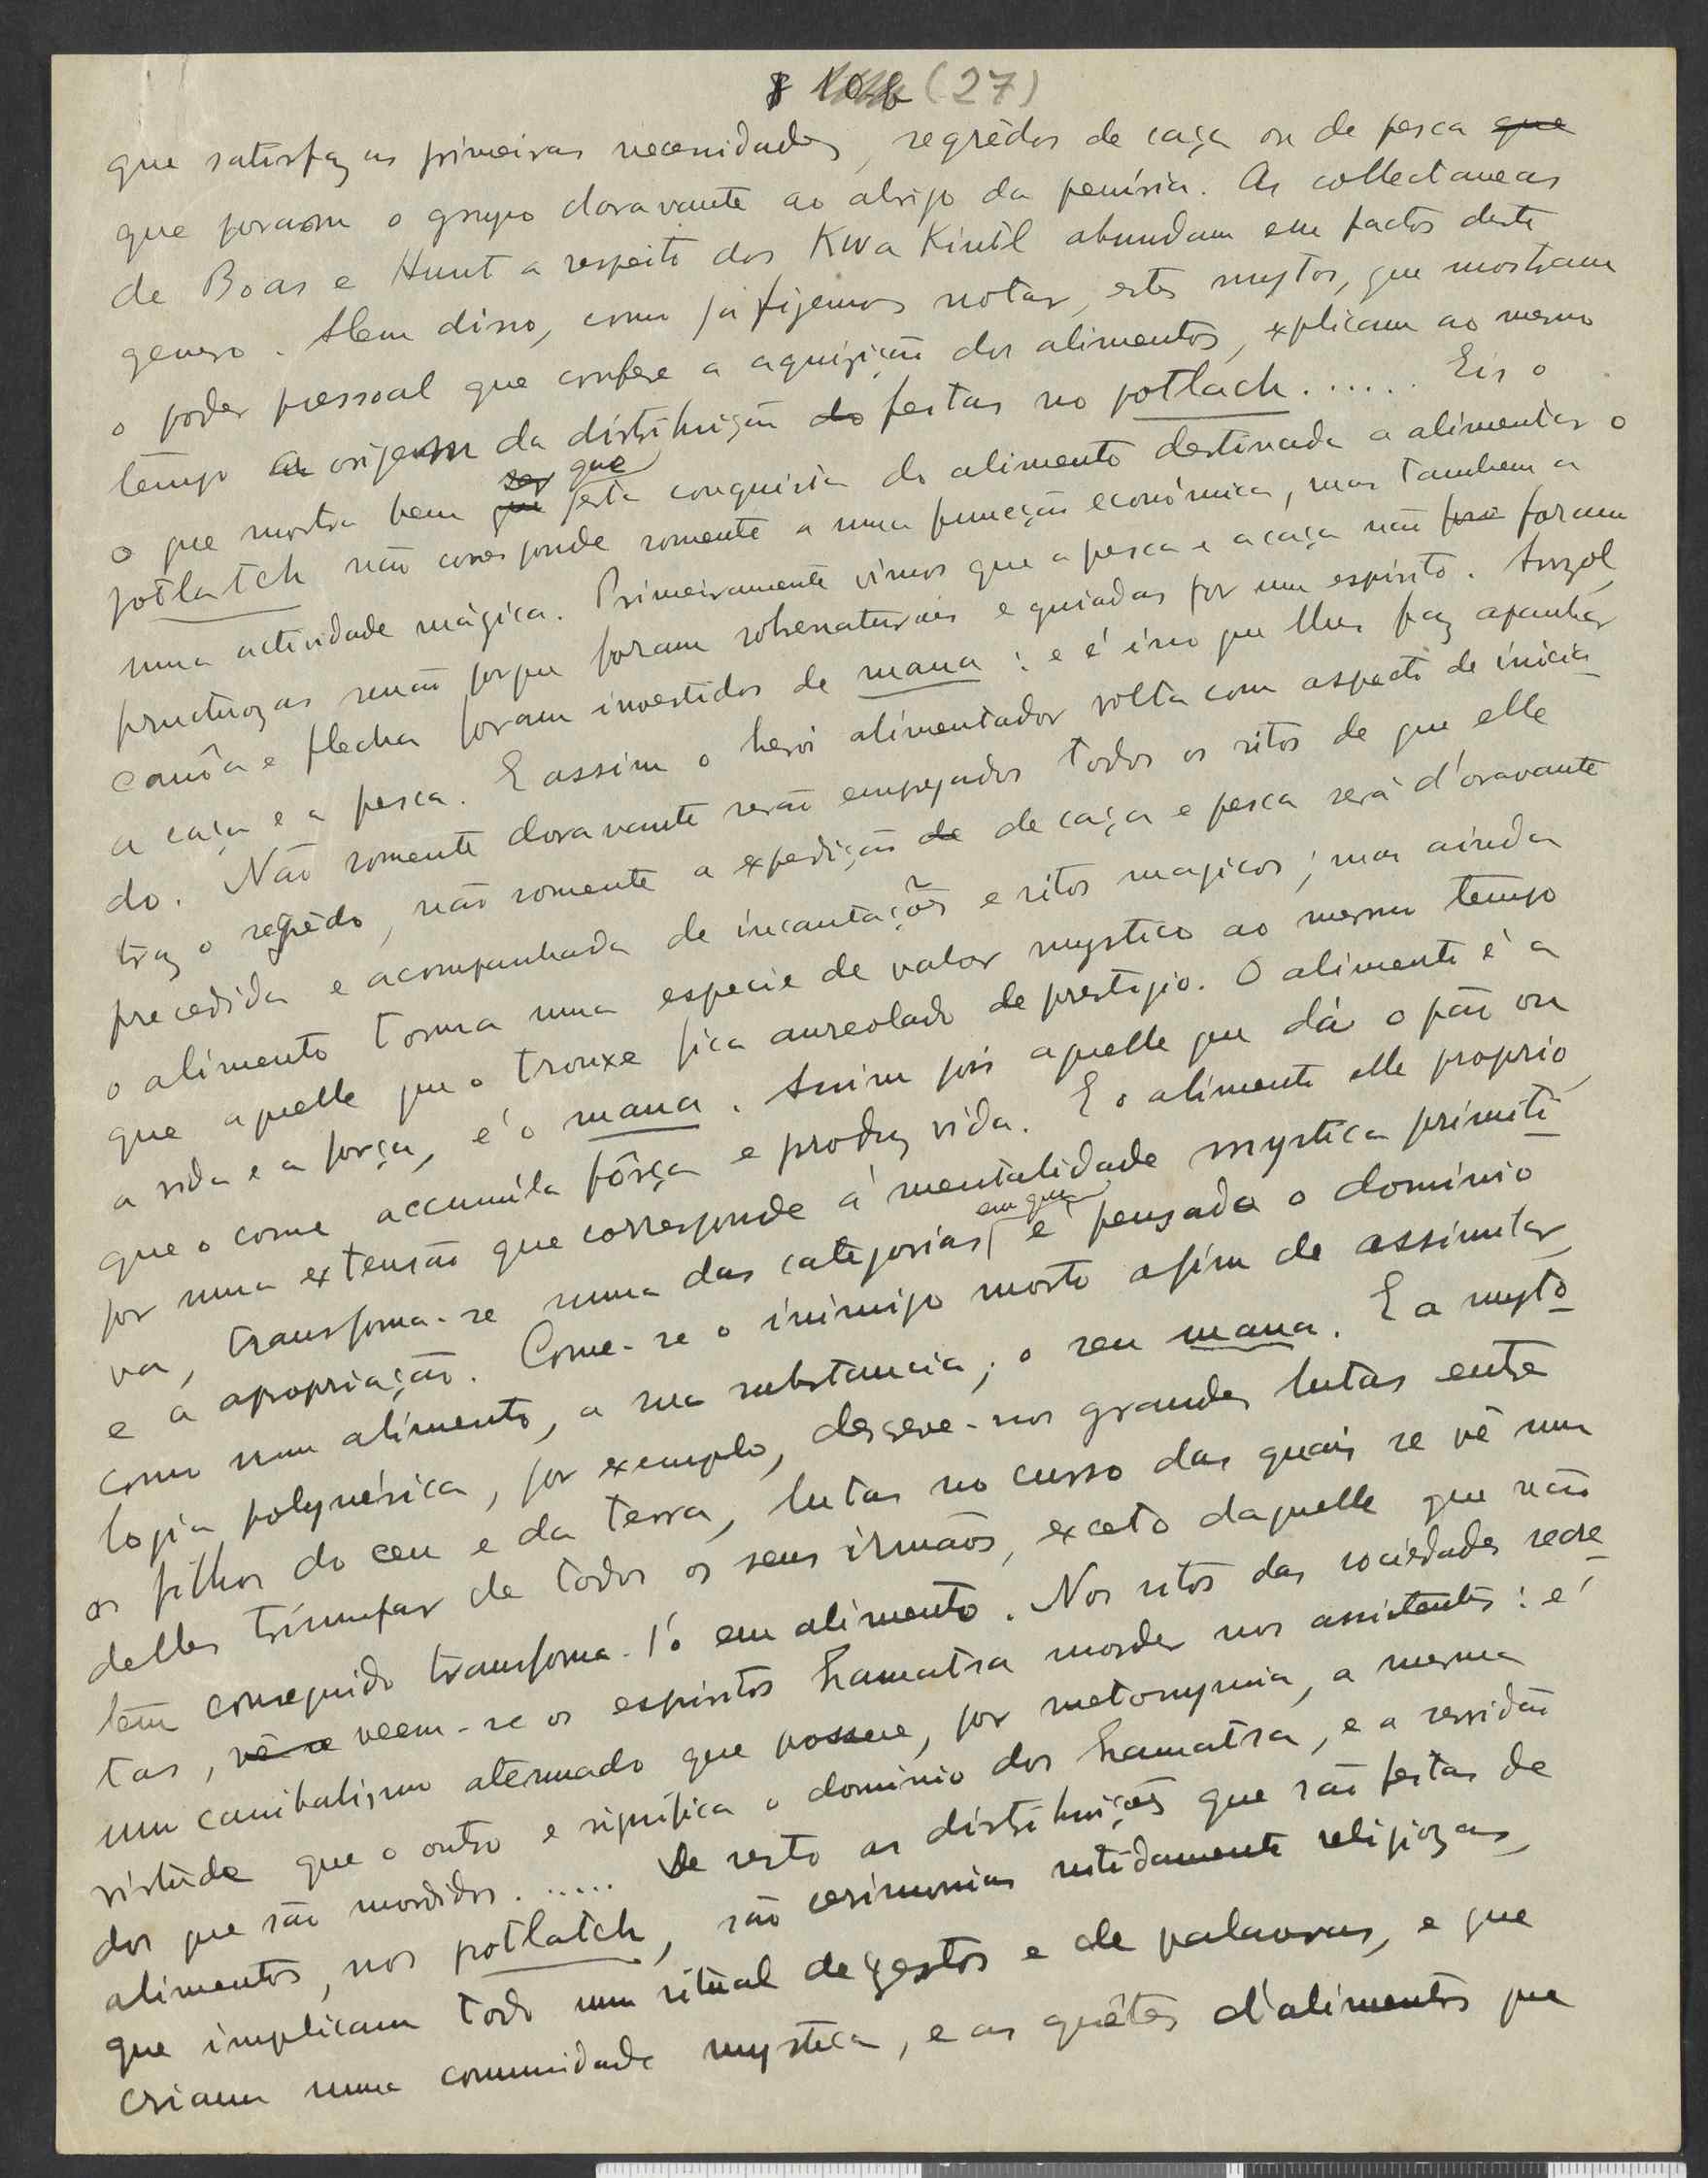 (27)
que satisfaz as primeiras necessidades, segrêdos de caça ou de pesca que
que poraom o grupo doravante ao abrigo da penúria. As collectaneas
de Boas e Hunt a respeito dos Kwa Kiutl abundam em factos deste
genero. Alem disso, como já fizemos notar, estes mytos, que mostram
o poder pessoal que confere a aquisição dos alimentos, explicam ao mesmo
tempo a origem da distribuição do festas no potlach...... Eis o
o que mostra bem que esta conquista do alimento destinada a alimentar o
potlatch não corresponde somente a uma funcção económica, mas tambem a
uma actividade mágica. Primeiramente vimos que a pesca e a caça não fora foram
fructuozas senão porque foram sobrenaturais e guiadas por um espirito. Anzol,
canôa e flecha foram investidos de mana: e é isso que lhes faz apanhar
a caça e a pesca. E assim o heroi alimentador volta com aspecto de inicia-
do. Não somente doravante serão empregados todos os ritos de que elle
traz o segrêdo, não somente a expedição de de caça e pesca será d'oravante
precedida e acompanhada de incantações e ritos magicos; mas ainda
o alimento torma uma especie de valor mystico ao mesmo tempo
que aquelle que o trouxe fica aureolado de prestigio. O alimento é a
a vida e a força, é o mana. Assim pois aquelle que dá o pão ou
que o come accumúla fôrça e produz vida. E o alimento elle proprio,
por uma extensão que corresponde á mentalidade mystica primiti-
va, transforma-se numa das categorias em que é pensado o domínio
e a apropriação. Come-se o inimigo morto afim de assimilar,
como um alimento, a sua substancia; o seu mana. E a myto-
logia polynésica, por exemplo, descreve-nos grandes lutas entre
os filhos do ceu e da terra, lutas no curso das quais se vê um
delles triumfar de todos os seus irmãos, exceto daquelle que não
tem conseguido transforma-l'o em alimento. Nos ritos das sociedades secre-
tas, vê-se veem-se os espiritos hamatsa morder nos assistentes: é
um canibalismo atenuado que possue, por metonymia, a mesma
virtude que o outro e significa o dominio dos hamatsa, e a servidão
dos que são mordidos...... De resto as distribuições que são festas de
alimentos, nos potlatch, são cerimonias nitidamente religiozas,
que implicam todo um ritual de gestos e de palavras, e que
criam uma comunidade mystica, e as quêtes d'alimentos que